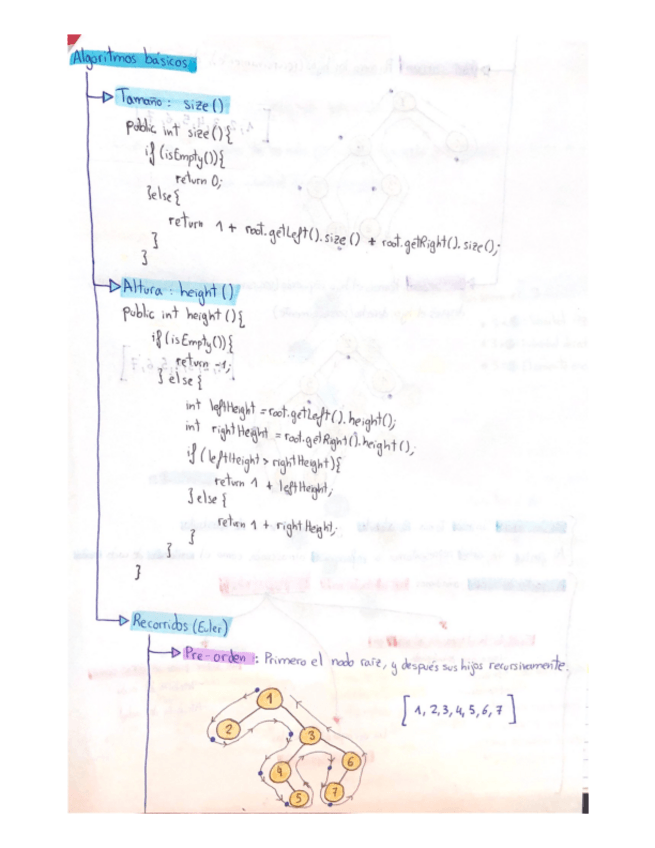 Algoritmos básicos
Tamaño: size()
public int size(){
if (isEmpty()){
return 0;
}else{
return 1 + root.getLeft().size() + root.getRight().size();
}
}
Altura: height()
public int height(){
if (isEmpty()){
return -1;
} else {
int leftHeight = root.getLeft().height();
int rightHeight = root.getRight().height();
if (leftHeight > rightHeight){
return 1 + leftHeight;
}else{
return 1 + rightHeight;
}
}
}
Recorridos (Euler)
Pre-orden: Primero el nodo raíz, y después sus hijos recursivamente.
[1, 2, 3, 4, 5, 6, 7]
1
2
3
4
6
5
7